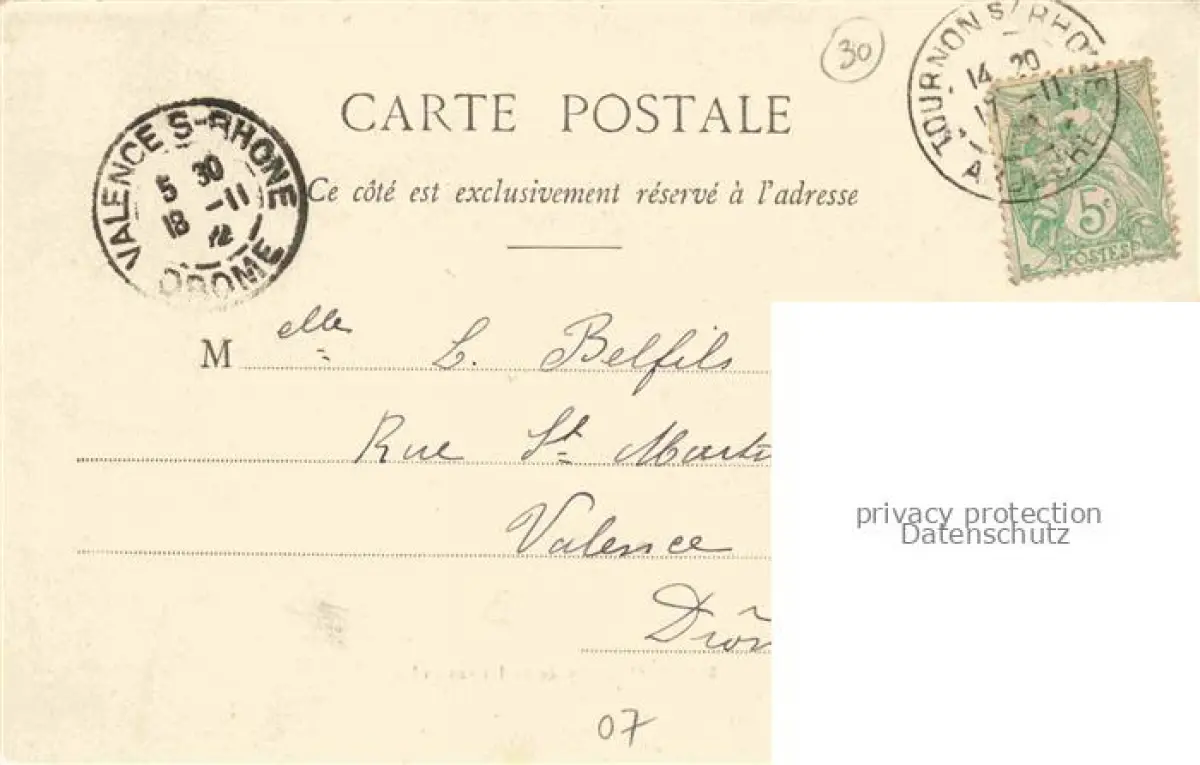 30
CARTE POSTALE
Ce côté est exclusivement réservé à l'adresse
VALENCE S-RHONE
5 30
18 -11
DROME
TOURNON S/ RHONE
14 20
-11
ARDECHE
5c
POSTES
Melle L. Belfils
Rue St Marti
Valence
Drôm
07
privacy protection
Datenschutz